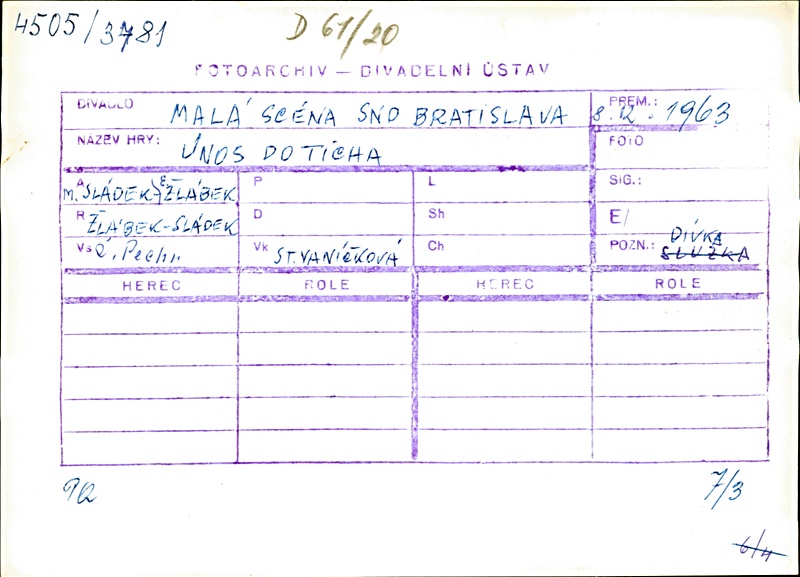 4505/3781 D 61/20
FOTOARCHIV — DIVADELNÍ ÚSTAV
DIVADLO MALÁ SCÉNA SND BRATISLAVA PREM.: 8.12. 1963
NÁZEV HRY: ÚNOS DO TICHA FOTO
A M. SLÁDEK, E ŽLÁBEK P L SIG.:
R ŽLÁBEK-SLÁDEK D Sh E/
Vs L. Pechr. Vk ST. VANÍČKOVÁ Ch POZN.: DÍVKA
SLUŽKA
HEREC ROLE HEREC ROLE
7/3
6/4